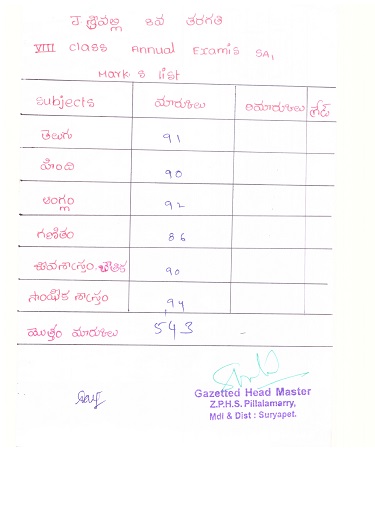 శ్రీవల్లి 8వ తరగతి
VIII class Annual Exams SA1
Marks list
Subjects మార్కులు రిమార్కులు గ్రేడ్
తెలుగు 91
హింది 90
ఆంగ్లం 92
గణితం 86
జీవశాస్త్రం, భౌతిక 90
సాంఘిక శాస్త్రం 94
మొత్తం మార్కులు 543 -
Gazetted Head Master
Z.P.H.S. Pillalamarry,
Mdl & Dist : Suryapet.